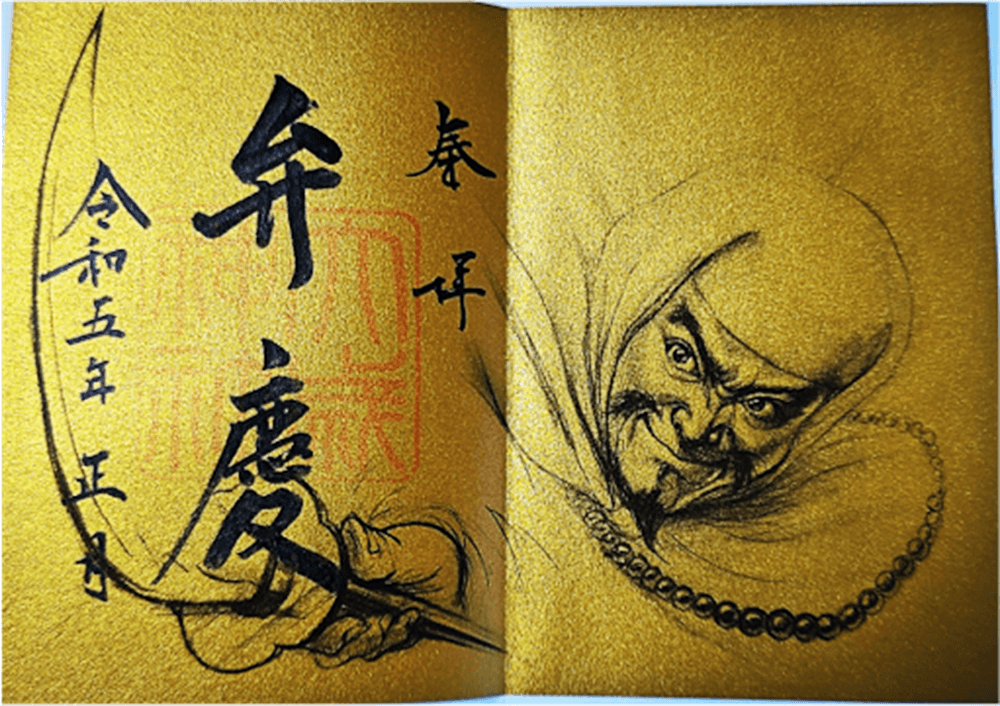 奉拝
弁慶
令和五年 正月